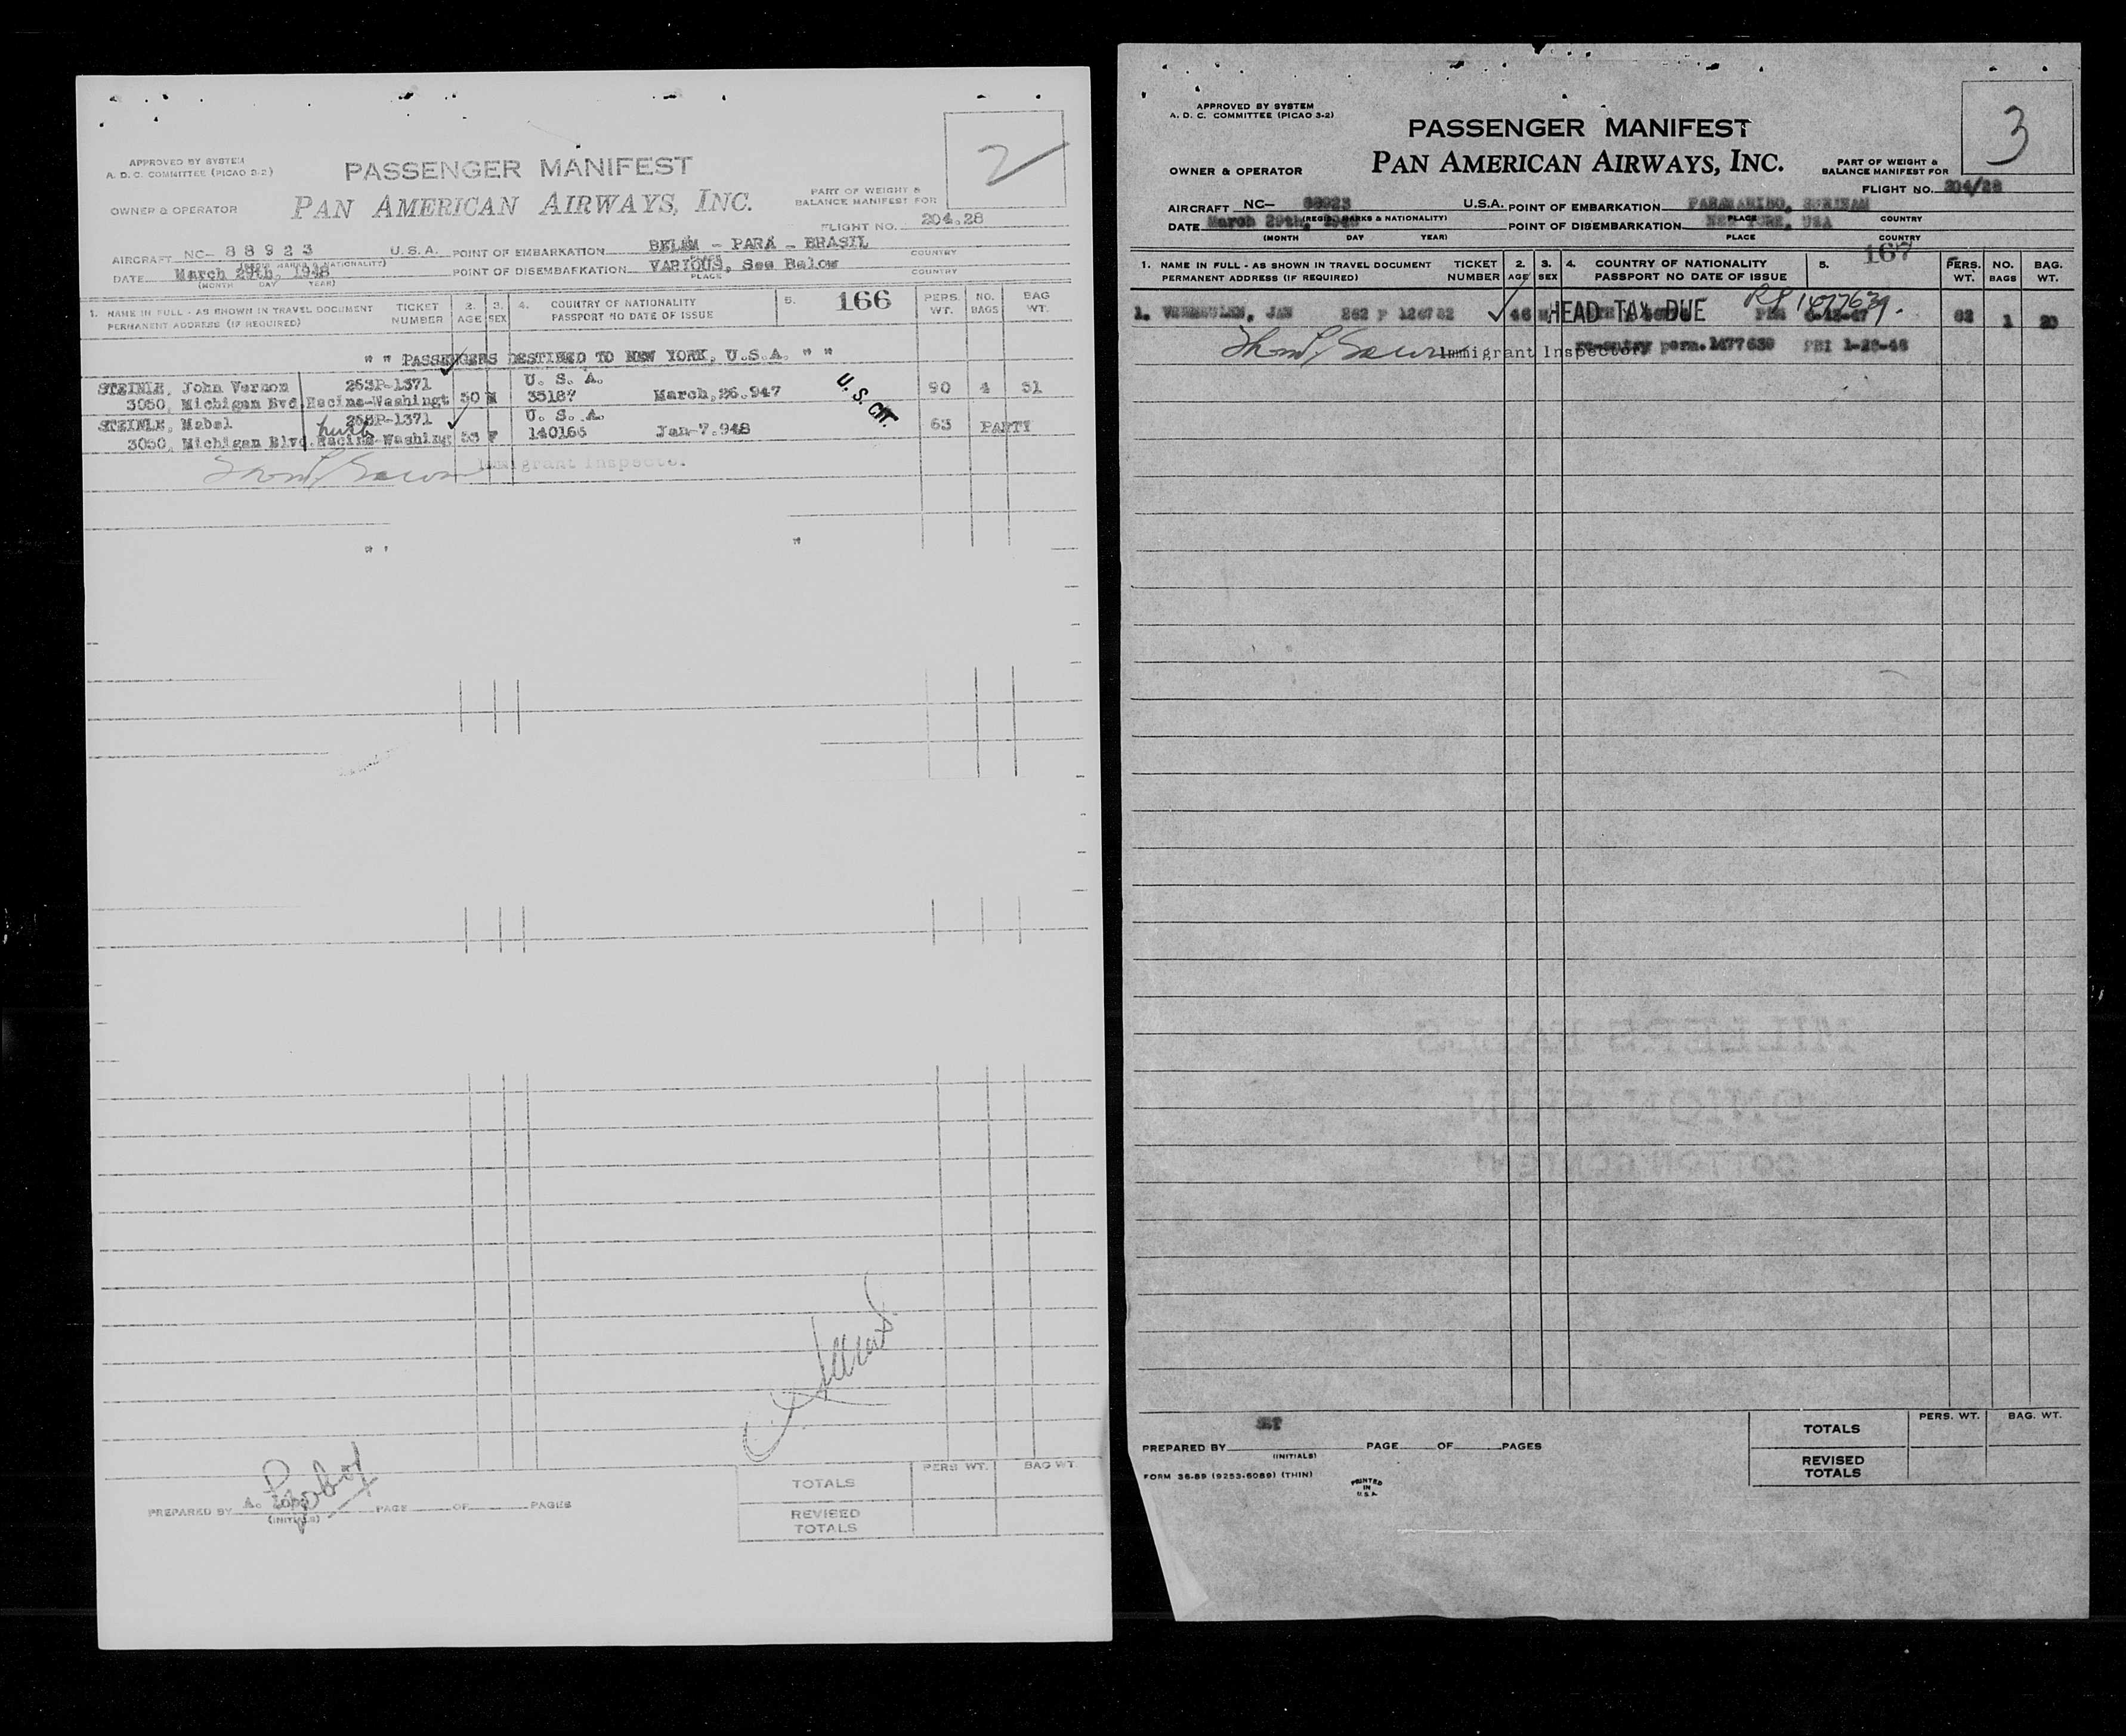 2
APPROVED BY SYSTEM
A. D. C. COMMITTEE (PICAO 3-2)
PASSENGER MANIFEST
OWNER & OPERATOR
PAN AMERICAN AIRWAYS, INC.
PART OF WEIGHT &
BALANCE MANIFEST FOR
FLIGHT NO. 204.28
AIRCRAFT NC- 88923 U.S.A. POINT OF EMBARKATION BELÉM - PARÁ - BRASIL
(REGIS. MARKS & NATIONALITY) PLACE COUNTRY
DATE March 29th, 1948 POINT OF DISEMBARKATION VARIOUS, See Below
(MONTH DAY YEAR) PLACE COUNTRY
1. NAME IN FULL - AS SHOWN IN TRAVEL DOCUMENT TICKET 2. 3. 4. COUNTRY OF NATIONALITY 5. 166 PERS. NO. BAG
PERMANENT ADDRESS (IF REQUIRED) NUMBER AGE SEX PASSPORT NO DATE OF ISSUE WT. BAGS WT.
" " PASSENGERS DESTINED TO NEW YORK, U.S.A. " "
STEINLE, John Vernon 263P-1371 U. S. A. U.S. CIT. 90 4 51
3050, Michigan Bvd. Racine-Washingt 50 M 35187 March, 26.947
STEINLE, Mabel 263P-1371 U. S. A. 63 PARTY
3050, Michigan Blvd. Racine-Washing 53 F 140166 Jan-7.948
Immigrant Inspector
TOTALS PERS WT. BAG WT.
PREPARED BY A. PAGE OF PAGES
(INITIALS)
REVISED
TOTALS
3
APPROVED BY SYSTEM
A. D. C. COMMITTEE (PICAO 3-2)
PASSENGER MANIFEST
OWNER & OPERATOR
PAN AMERICAN AIRWAYS, INC.
PART OF WEIGHT &
BALANCE MANIFEST FOR
FLIGHT NO. 204/28
AIRCRAFT NC- 88923 U.S.A. POINT OF EMBARKATION PARAMARIBO, SURINAM
(REGIS. MARKS & NATIONALITY) PLACE COUNTRY
DATE March 29th, 1948 POINT OF DISEMBARKATION NEW YORK, USA
(MONTH DAY YEAR) PLACE COUNTRY
167
1. NAME IN FULL - AS SHOWN IN TRAVEL DOCUMENT TICKET 2. 3. 4. COUNTRY OF NATIONALITY 5. PERS. NO. BAG.
PERMANENT ADDRESS (IF REQUIRED) NUMBER AGE SEX PASSPORT NO DATE OF ISSUE WT. BAGS WT.
1. VERMEULEN, JAN 262 P 126782 46 M HEAD TAX DUE RP 1477639. 82 1 20
Immigrant Inspector re-entry perm. 1477639 PBI 1-26-48
MILLERS FALLS
ONION SKIN
COTTON CONTENT
PREPARED BY PAGE OF PAGES
(INITIALS)
FORM 36-89 (9253-6089) (THIN)
PRINTED
IN
U.S.A.
TOTALS PERS. WT. BAG. WT.
REVISED
TOTALS